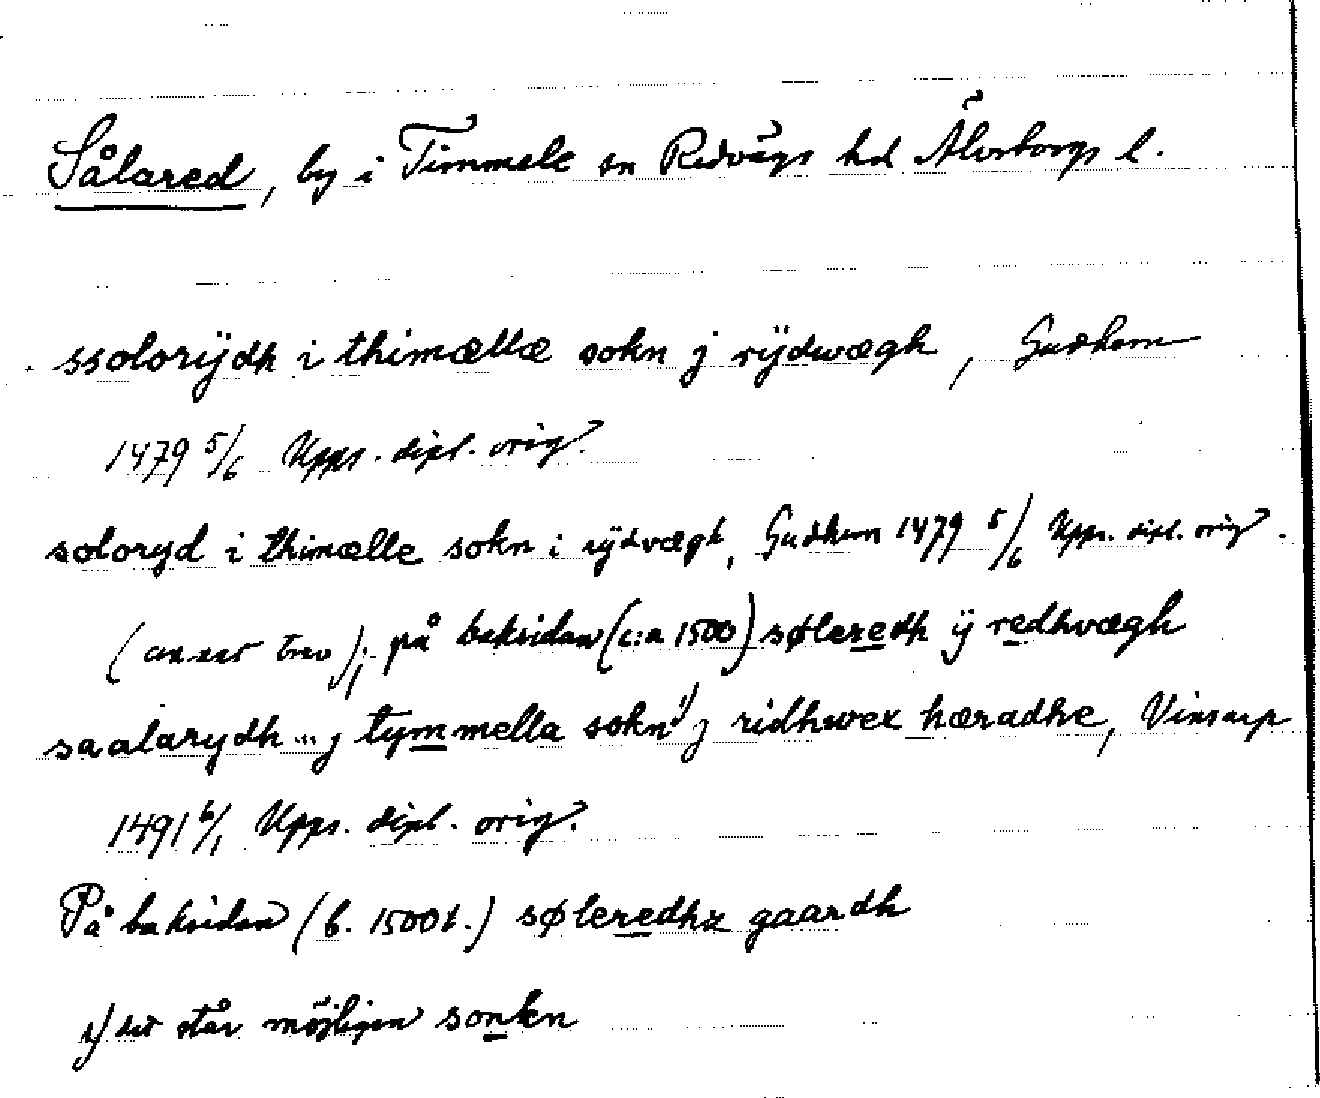 Sålared, by i Timmele sn Redvägs hd Älvsborgs l.
ssolorÿdh i thimællæ sokn j rÿdwægh, Gudhem
1479 5/6 Upps. dipl. orig.
soloryd i thimælle sokn i rÿdvægh, Gudhem 1479 5/6 Upps. dipl. orig.
(annat brev); på baksidan (c:a 1500) søleredh ÿ redhvægh
saalarydh ... j tymmella sokn 1) j ridhwex hæradhe, Vinsarp
1491 6/1 Upps. dipl. orig.
På baksidan (b. 1500t.) søleredhz gaardh
1) det står möjligen sonkn